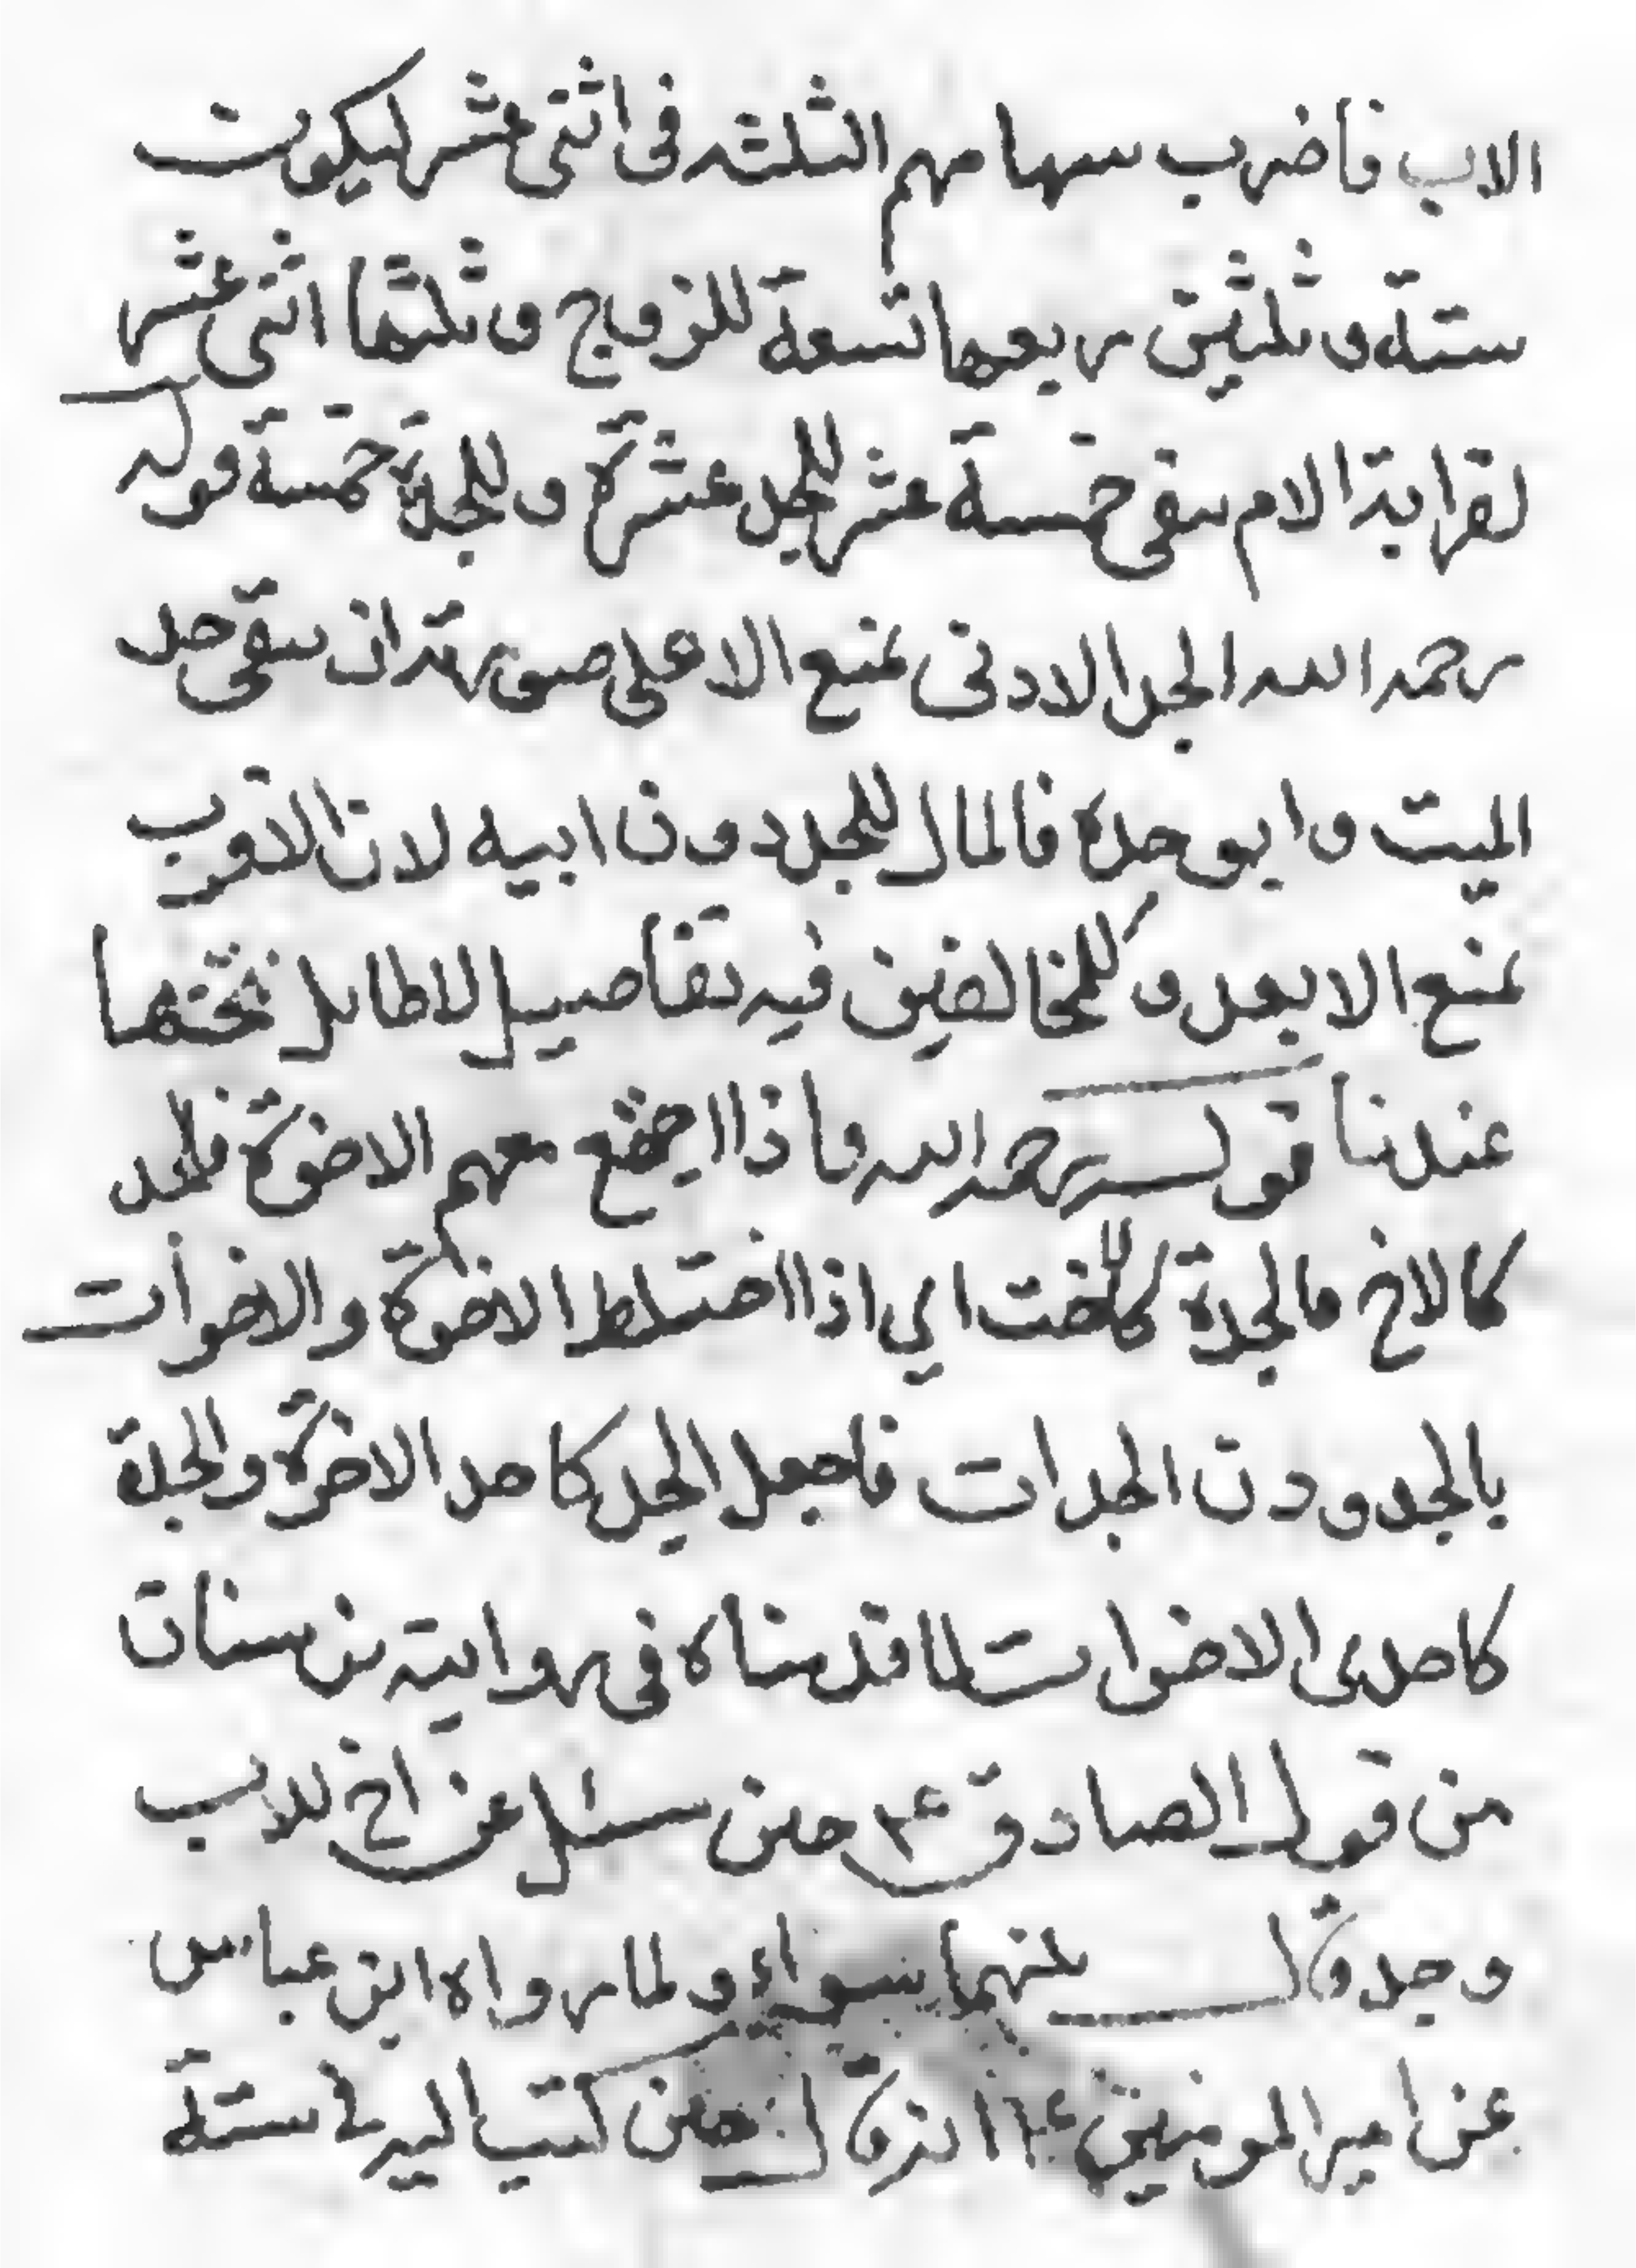 الاب فاضرب سهامهم الثلثه فى اثنى عشر ليكون
ستة و ثلثين ربعها تسعة للزوج و ثلثها اثنى عشر
لقرابة الام يبقى خمسة عشر للجد عشرة و للجدة خمسة قوله
رحمه الله الجد الادنى يمنع الاعلى صورته ان يبقى جد
الميت و ابو جده فالمال للجد دون ابيه لان الاقرب
يمنع الابعد و للمخالفين فيه تفاصيل لاطايل تحتها
عندنا قوله رحمه الله واذا اجتمع معهم الاخوة فالجد
كالاخ والجدة كالاخت اي اذا اختلط الاخوة والاخوات
بالجدودة الجدات فاجعل الجد كاحد الاخوة والجدة
كاحدى الاخوات لما قدمناه فى رواية بن سنان
من قول الصادق ع م حين سئل عن اخ للاب
وجد قال بينهما سواء و لما رواه ابن عباس
عن امير المومنين ع م انه قال حين كتب اليه في ستة